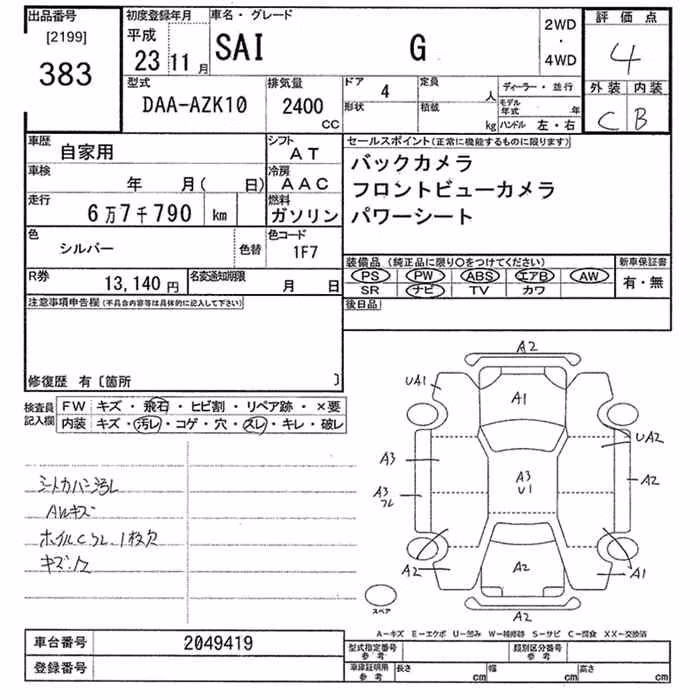 出品番号
[2199]
383
初度登録年月
平成
23 11月
車名・グレード
SAI G
2WD
・
4WD
評価点
4
外装 内装
C B
型式
DAA-AZK10
排気量
2400
cc
ドア 4
形状
定員 人
積載 kg
ディーラー・並行
モデル年式 年
ハンドル 左・右
車歴 自家用
シフト AT
車検 年 月( 日)
冷房 AAC
走行 6万7千790 km
燃料 ガソリン
色 シルバー 色替
色コード 1F7
R券 13,140円
名変通知期限 月 日
セールスポイント(正常に機能するものに限ります)
バックカメラ
フロントビューカメラ
パワーシート
装備品(純正品に限り○をつけてください)
PS PW ABS エアB AW
SR ナビ TV カワ
新車保証書
有・無
後日品
注意事項申告欄(不具合内容等は具体的に記入して下さい)
修復歴 有〔箇所 〕
検査員記入欄
FW キズ・飛石・ヒビ割・リペア跡・×要
内装 キズ・汚レ・コゲ・穴・スレ・キレ・破レ
シートカバー汚レ
AWキズ
ホイルC 1枚欠
A2
UA1
A1
UA2
A3
A3
U1
A2
A3
フレ
A2
A2
A1
A2
スペア
A-キズ E-エクボ U-凹み W-補修跡 S-サビ C-腐食 XX-交換済
車台番号 2049419
登録番号
型式指定番号参考
類別区分番号参考
車庫証明用参考
長さ cm 幅 cm 高さ cm